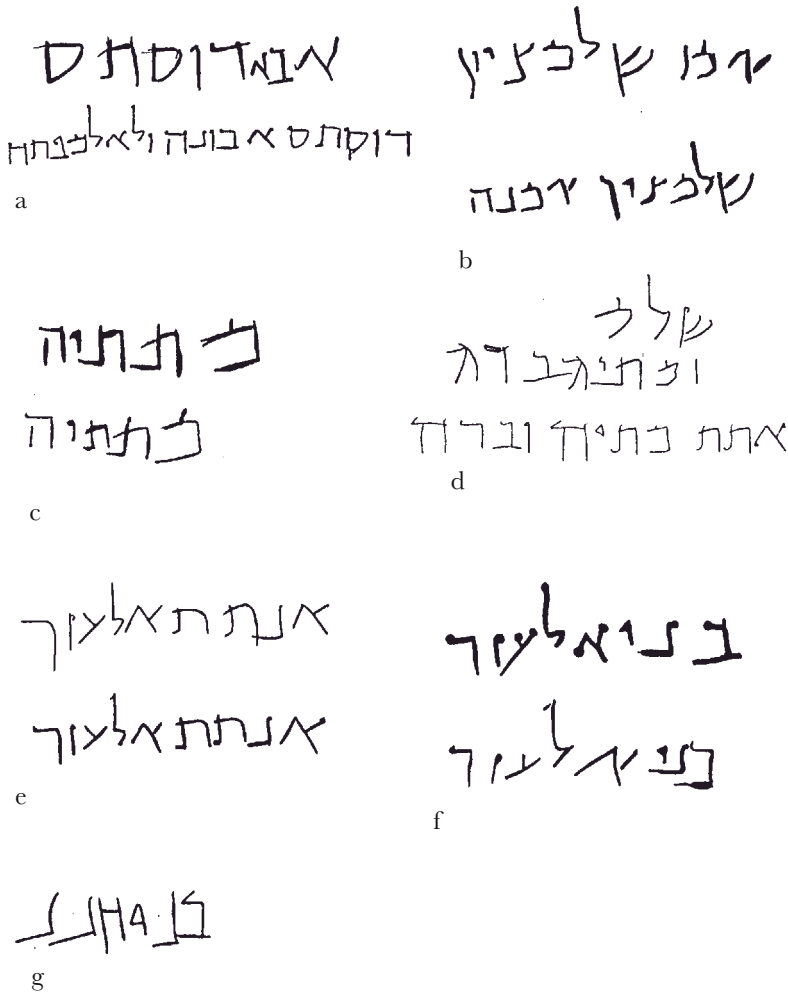 דוסתס
דוסתס אבונה ולא למפתח
a
אמו שלמציון
שלמציון אמנה
b
מתתיה
מתתיה
c
שלמ
ומתיה ברה
אתת מתיה וברה
d
אנתת אלעזר
אנתת אלעזר
e
בני אלעזר
בני אלעזר
f
בני חנן
g